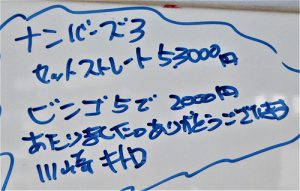 ナンバーズ3
セットストレート 53000円
ビンゴ5で 2000円
あたりました。ありがとうございます
川崎